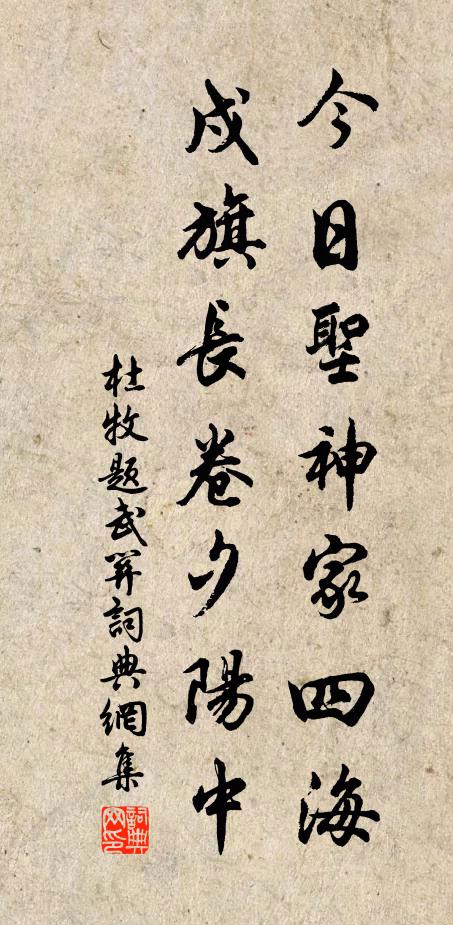 今日聖神家四海
戍旗長卷夕陽中
杜牧題武關詞典網集
詞典网印